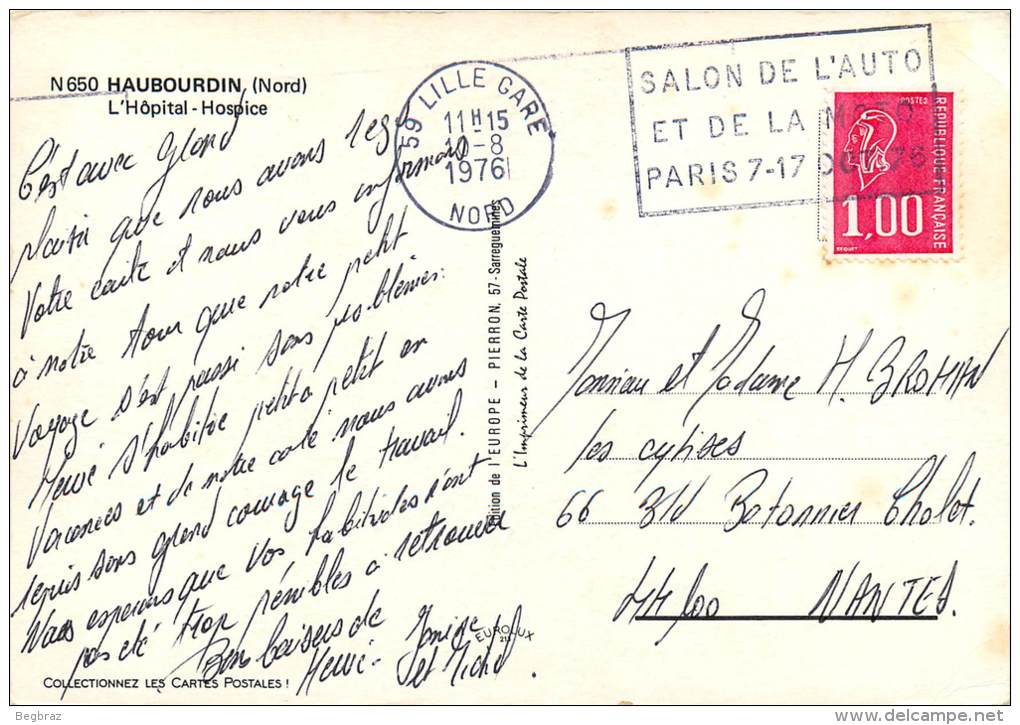 N 650 HAUBOURDIN, (Nord)
L'Hôpital - Hospice
C'est avec grand
plaisir que nous avons reçu
Votre carte et nous vous informons
à notre tour que notre petit
Voyage s'est passé sans problèmes.
Hervé s'habitue petit a petit en
Vacances et de notre coté nous avons
repris sans grand courage le travail.
Nous esperons que vos habitudes n'ont
pas été trop pénibles à retrouver
Bons baisers de
Hervé - 
et Michel
COLLECTIONNEZ LES CARTES POSTALES !
59 LILLE GARE
11H15
-8
1976
NORD
SALON DE L'AUTO
ET DE LA MOTO
PARIS 7-17 OCT 76
POSTES
REPUBLIQUE FRANÇAISE
1,00
BEQUET
Edition de l'EUROPE - PIERRON, 57 - Sarreguemines
L'Imprimeur de la Carte Postale
EUROLUX
Monsieur et Madame H. BROHAN
les cytises
66 Bld Batonnier Cholet.
44100 NANTES.
Begbraz